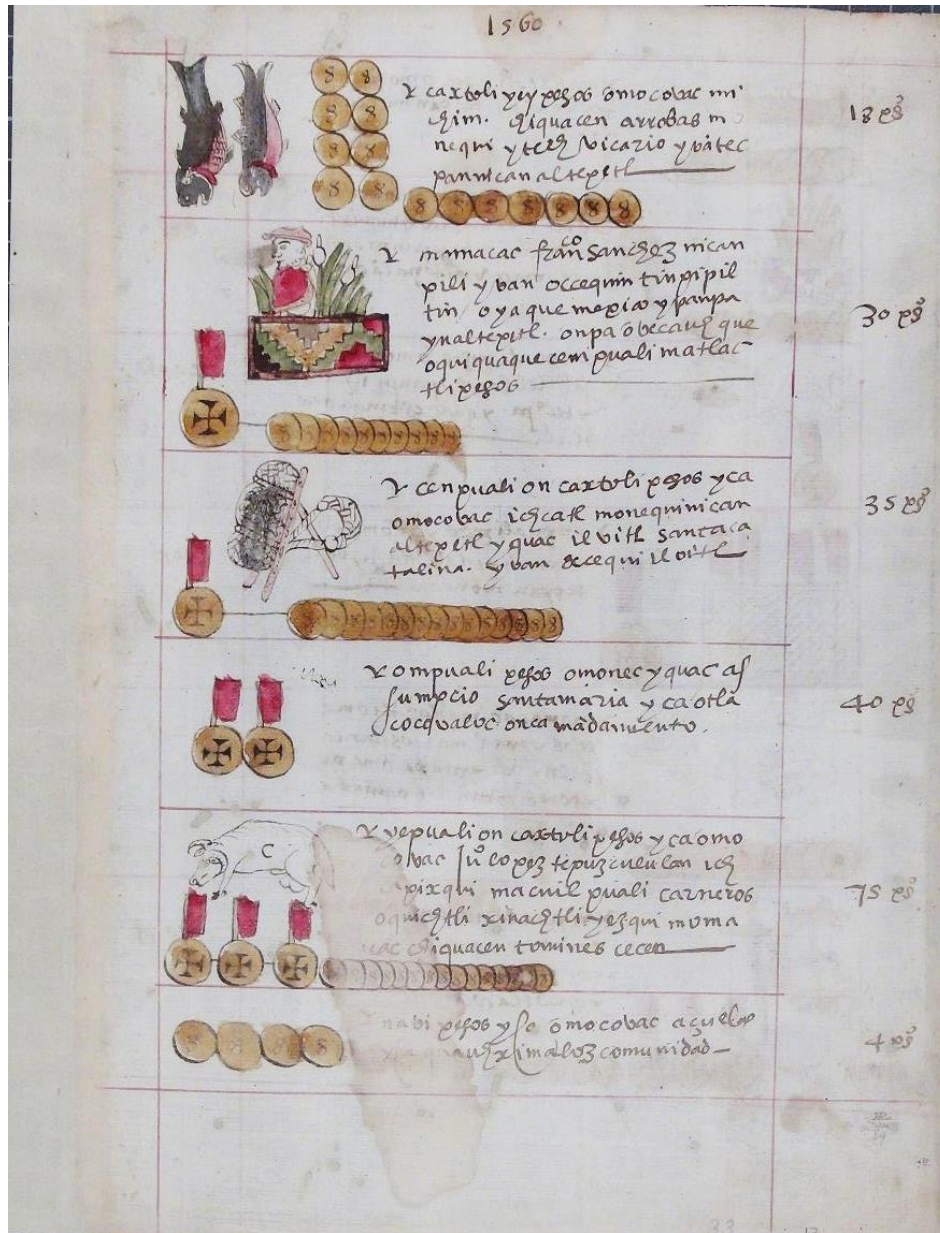 1560
caxtoli yey pesos omocovac mi
chim. chiquacen arrobas m
nequi ytech vicario yvã tec
pan nican altepetl
18 pºs
momacac franco sanchez nican
pili yvan occequin tinpipil
tin oyaque mexico ypanpa
ynaltepetl. onpa
oquiquaque cempuali matlac
tli pesos
30 pºs
cenpuali on caxtoli pesos yca
omocovac ichcatl monequi nican
altepetl yquac ilvitl santa ca
talina. yvan occequi ilvitl
35 pºs
ompuali pesos omonec yquac as
sumpcio santa maria yca otla
cocovaloc onca mãdamiento.
40 pºs
yepuali on caxtoli pesos yca omo
covac juº lopez tepuzculula ich
capixqui macuil puali carneros
oquichtli xinachtli yezqui moma
cac chiquacen tomines cecen
75 pºs
navi pesos yc omocovac açuelas
comunidad
4 pºs